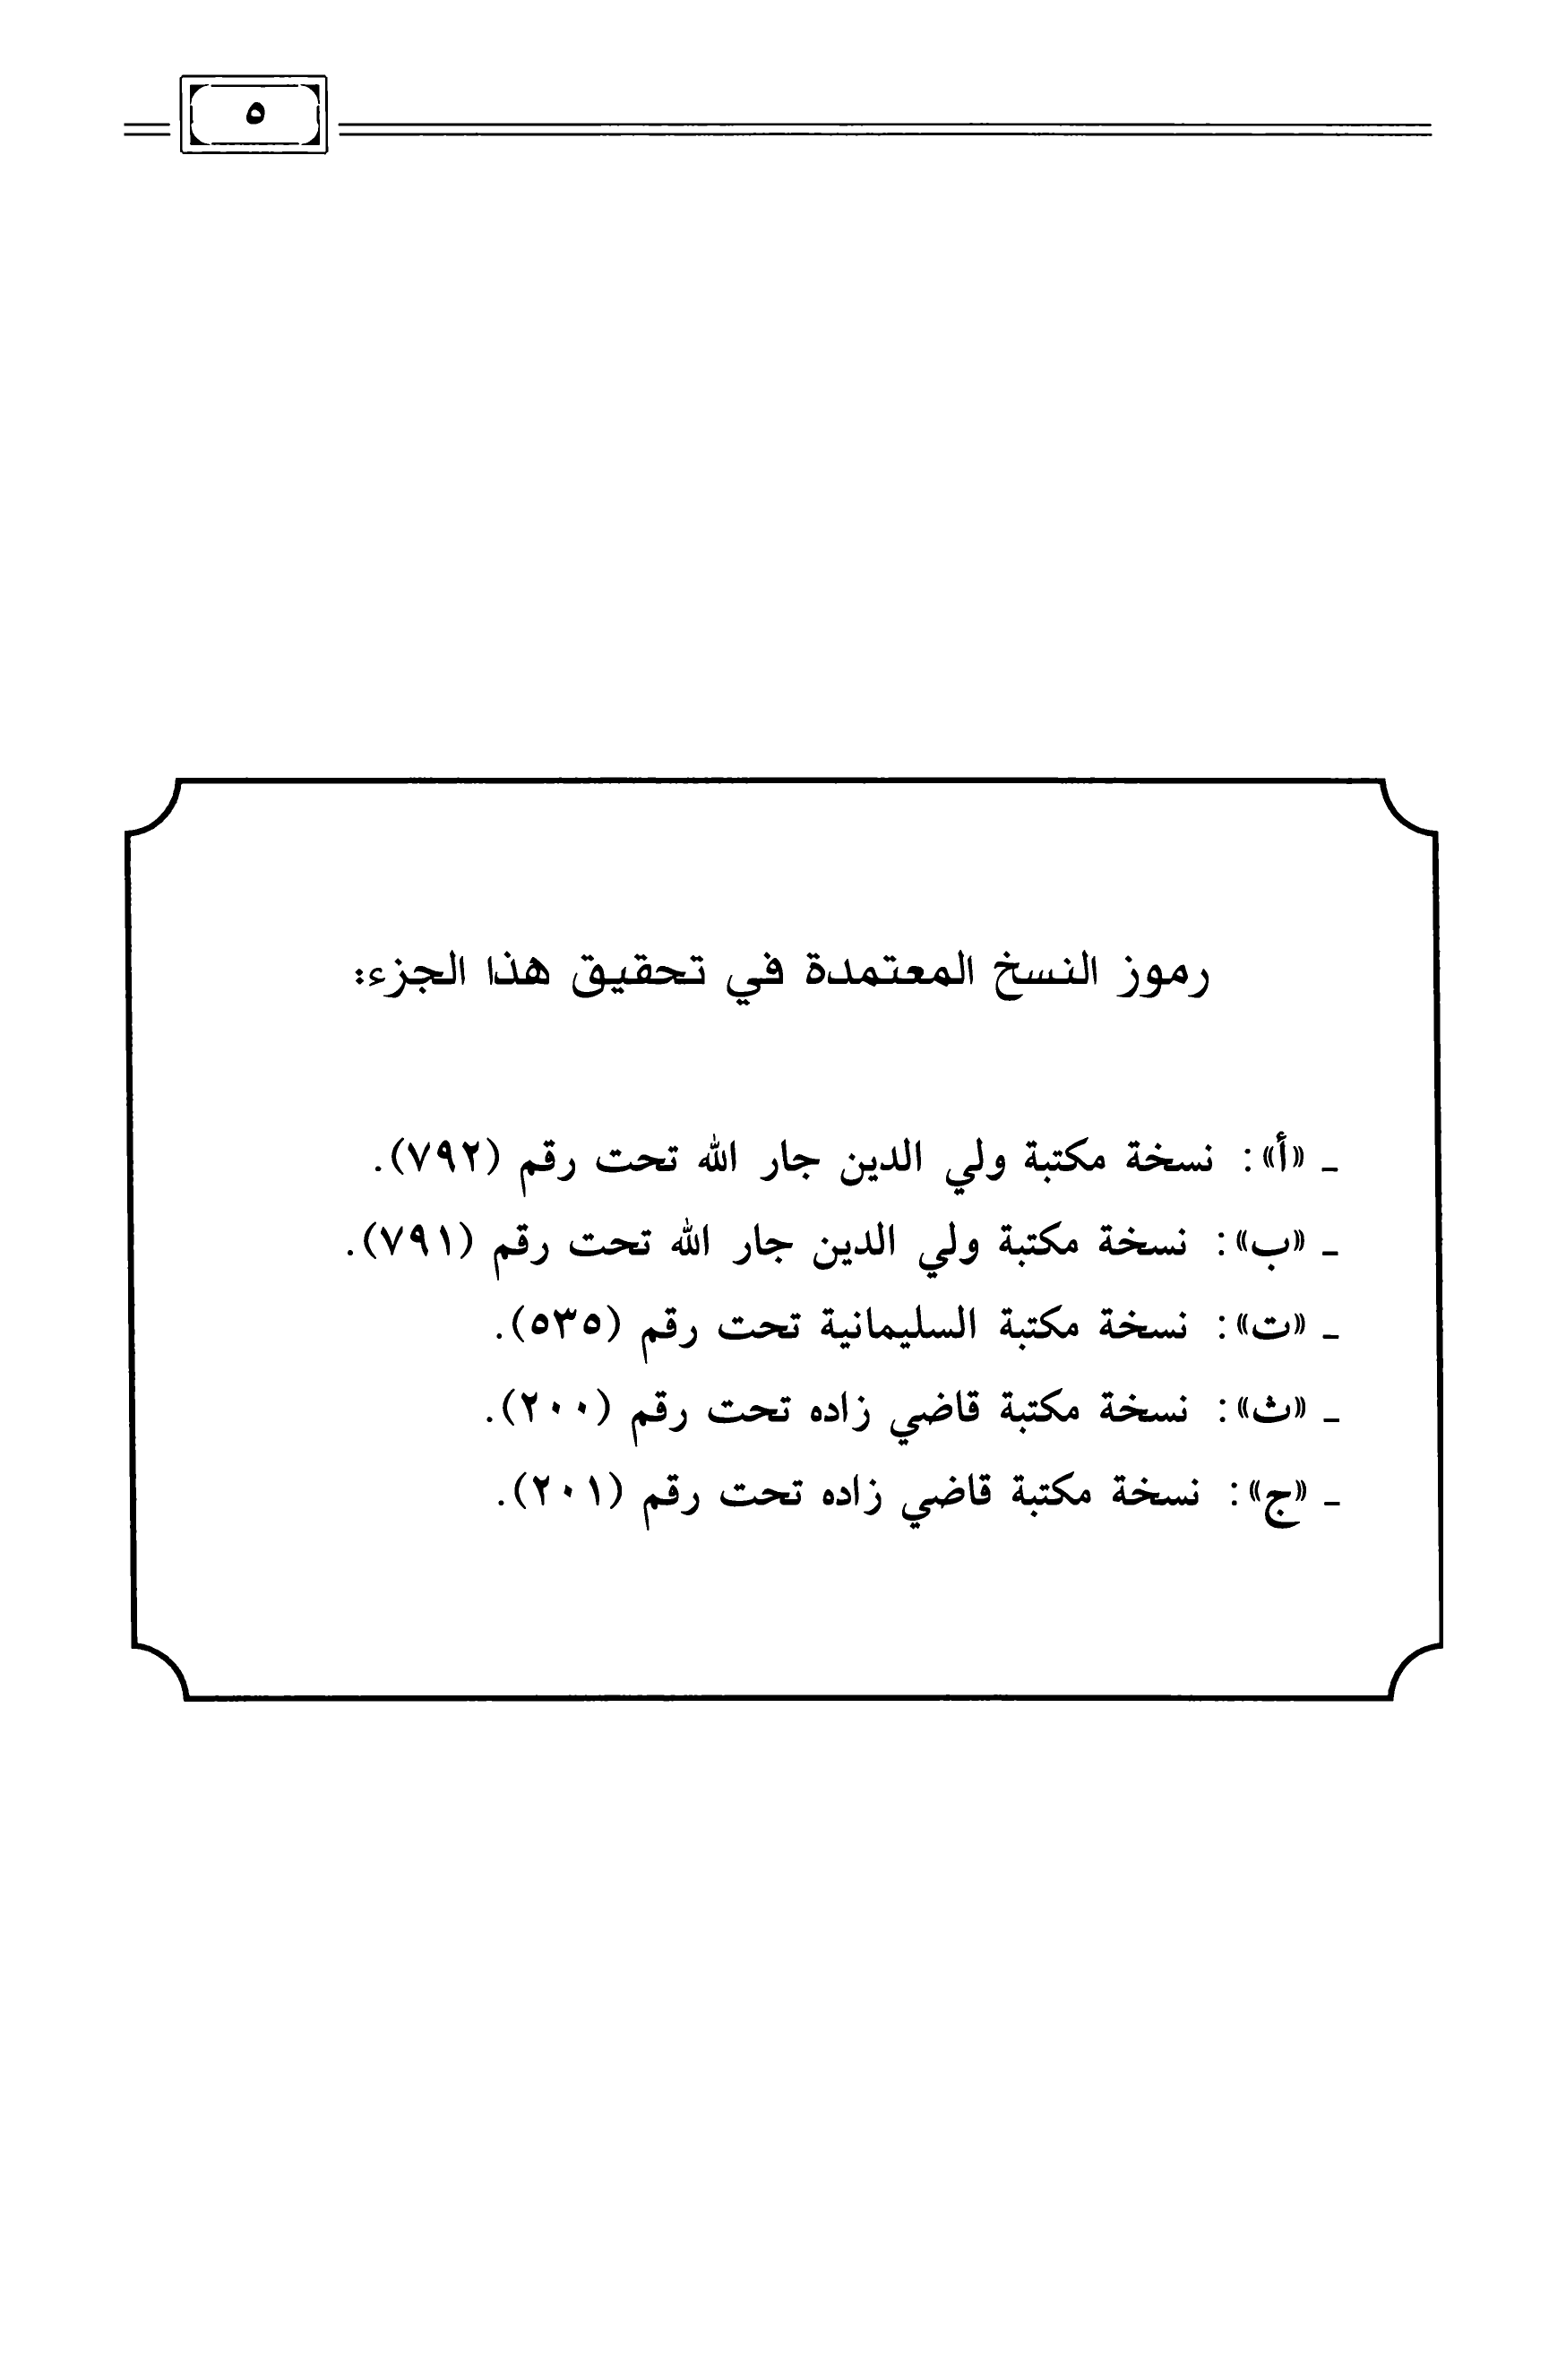 ٥
رموز النسخ المعتمدة في تحقيق هذا الجزء:
ـ «أ»: نسخة مكتبة ولي الدين جار الله تحت رقم (٧٩٢).
ـ «ب»: نسخة مكتبة ولي الدين جار الله تحت رقم (٧٩١).
ـ «ت»: نسخة مكتبة السليمانية تحت رقم (٥٣٥).
ـ «ث»: نسخة مكتبة قاضي زاده تحت رقم (٢٠٠).
ـ «ج»: نسخة مكتبة قاضي زاده تحت رقم (٢٠١).